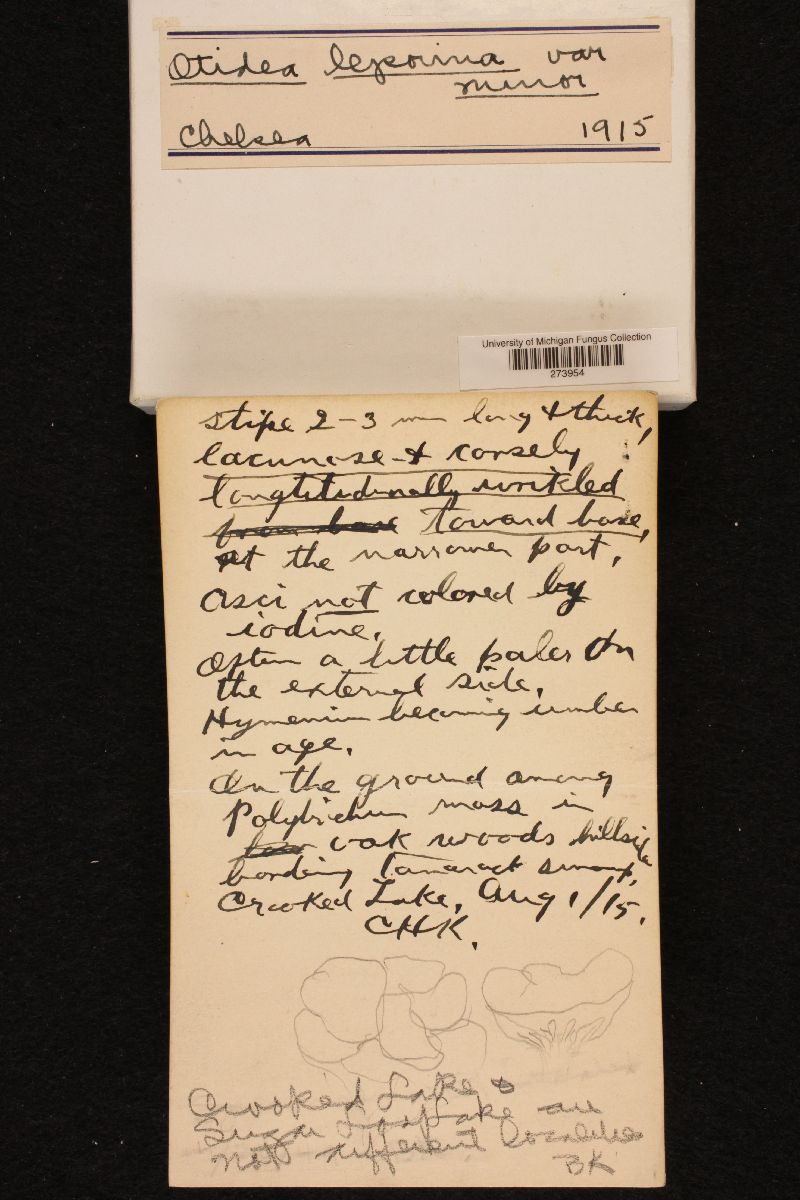 Otidea leporina var
minor
Chelsea 1915
University of Michigan Fungus Collection
273954
stipe 2-3 mm long & thick,
lacunose & corsely
longtitudinally wrikled
from base toward base,
at the narrower part,
Asci not colored by
iodine.
Often a little paler on
the external side.
Hymenium becoming umber
in age.
On the ground among
Polytrichum moss in
oak woods hillside
bordering Tamarack swamp,
Crooked Lake, Aug 1/15,
CHK.
Crooked Lake &
Sugar Loaf Lake are
not different localities
BK